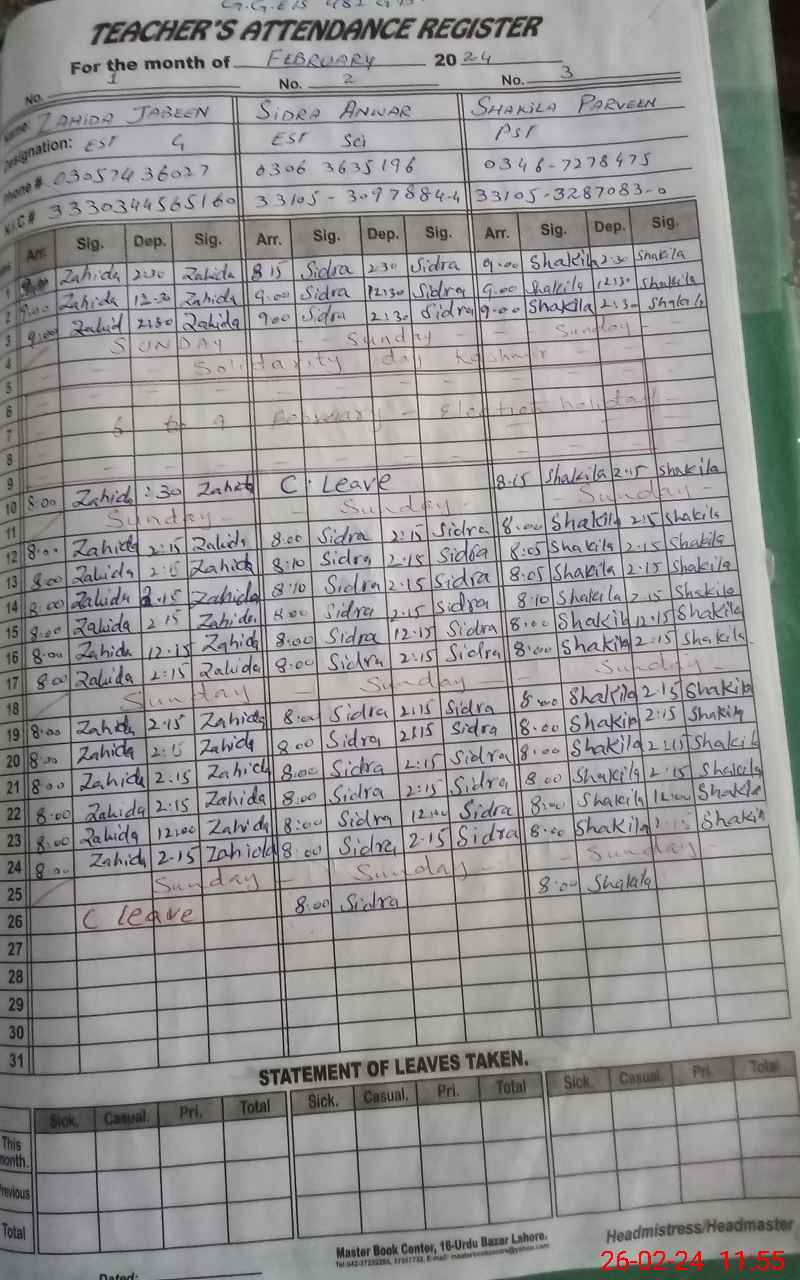 G.G.E/S 482 G.B
TEACHER'S ATTENDANCE REGISTER
For the month of FEBRUARY 2024
No. 1 No. 2 No. 3
Name: ZAHIDA JABEEN SIDRA ANWAR SHAKILA PARVEEN
Designation: EST G EST Sci PST
Phone # 03057436027 0306 3635196 0346-7278475
N.I.C # 3330344565160 33105-3097884-4 33105-3287083-0
Arr. Sig. Dep. Sig. Arr. Sig. Dep. Sig. Arr. Sig. Dep. Sig.
1 9.00 Zahida 2:30 Zahida 8 15 Sidra 2:30 Sidra 9.00 Shakila 2:30 Shakila
2 9.00 Zahida 12.30 Zahida 9.00 Sidra 12:30 Sidra 9.00 Shakila 12:30 Shakila
3 9:00 Zahid 2:30 Zahida 900 Sidra 2:30 Sidra 9.00 Shakila 2:30 Shakila
4 SUNDAY - Sunday - Sunday -
5 Solidarity day Kashmir
6
7 6 to 9 February - Election holiday -
8
9
10 8:00 Zahida :30 Zahida C. Leave 8.15 Shakila 2.15 Shakila
11 Sunday - Sunday - Sunday -
12 8:00 Zahida 2:15 Zahida 8:00 Sidra 2:15 Sidra 8.00 Shakila 2:15 Shakila
13 8:00 Zahida 2:15 Zahida 8:10 Sidra 2.15 Sidra 8:05 Shakila 2.15 Shakila
14 8:00 Zahida 2.15 Zahida 8:10 Sidra 2.15 Sidra 8.05 Shakila 2.15 Shakila
15 8:00 Zahida 2 15 Zahida 8:00 Sidra 2.15 Sidra 8:10 Shakila 2.15 Shakila
16 8:00 Zahida 12.15 Zahida 8:00 Sidra 12.15 Sidra 8:00 Shakila 12.15 Shakila
17 8:00 Zahida 2:15 Zahida 8:00 Sidra 2:15 Sidra 8:00 Shakila 2:15 Shakila
18 Sunday - Sunday - Sunday -
19 8:00 Zahida 2.15 Zahida 8:00 Sidra 2:15 Sidra 8:00 Shakila 2.15 Shakila
20 8:00 Zahida 2:15 Zahida 8:00 Sidra 2:15 Sidra 8.00 Shakila 2:15 Shakila
21 8:00 Zahida 2.15 Zahida 8:00 Sidra 2:15 Sidra 8:00 Shakila 2:15 Shakila
22 8:00 Zahida 2:15 Zahida 8:00 Sidra 2:15 Sidra 8 00 Shakila 2.15 Shakila
23 8:00 Zahida 12:00 Zahida 8:00 Sidra 12:00 Sidra 8:00 Shakila 12:00 Shakila
24 8:00 Zahida 2.15 Zahida 8:00 Sidra 2.15 Sidra 8:00 Shakila 2.15 Shakila
25 Sunday - Sunday - - Sunday -
26 C leave 8:00 Sidra 8:00 Shakila
27
28
29
30
31
STATEMENT OF LEAVES TAKEN.
Sick. Casual. Pri. Total Sick. Casual. Pri. Total Sick. Casual. Pri. Total
This month.
Previous
Total
Headmistress/Headmaster
Master Book Center, 16-Urdu Bazar Lahore.
Dated:
26-02-24 11:55